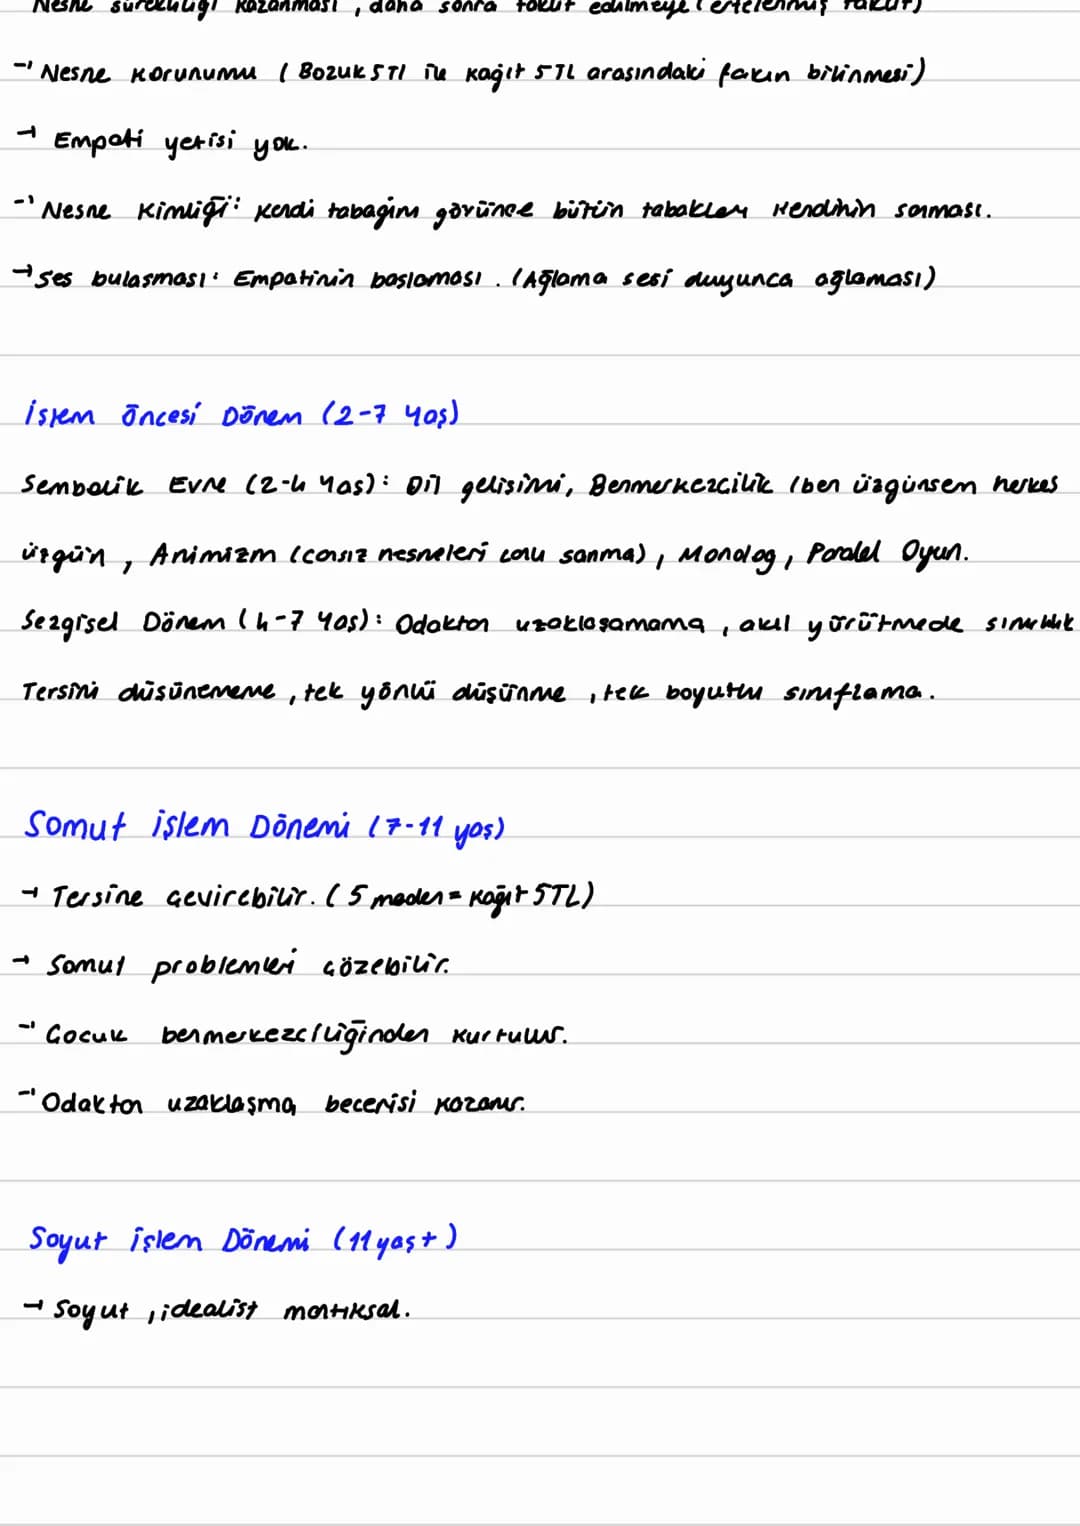 Nesne sürekliliği kazanması, daha sonra taklit edilmeye (ertelenmiş taklit)
→ Nesne korunumu (Bozuk 5 Tl ile kağıt 5 TL arasındaki farkın bilinmesi)
→ Empati yetisi yok.
→ Nesne Kimliği: Kendi tabağını görünce bütün tabakları kendinin sanması.
→ Ses bulaşması: Empatinin başlaması. (Ağlama sesi duyunca ağlaması)
İşlem Öncesi Dönem (2-7 Yaş)
Sembolik Evre (2-4 Yaş): Dil gelişimi, Benmerkezcilik (ben üzgünsem herkes
üzgün, Animizm (cansız nesneleri canlı sanma), Monolog, Paralel Oyun.
Sezgisel Dönem (4-7 Yaş): Odaktan uzaklaşamama, akıl yürütmede sınırlılık
Tersini düşünememe, tek yönlü düşünme, tek boyutlu sınıflama.
Somut işlem Dönemi (7-11 yaş)
→ Tersine çevirebilir. (5 maden = Kağıt 5TL)
→ Somut problemleri çözebilir.
→ Çocuk benmerkezciliğinden kurtulur.
→ Odaktan uzaklaşma becerisi kazanır.
Soyut işlem Dönemi (11 yaş+)
→ Soyut, idealist mantıksal.